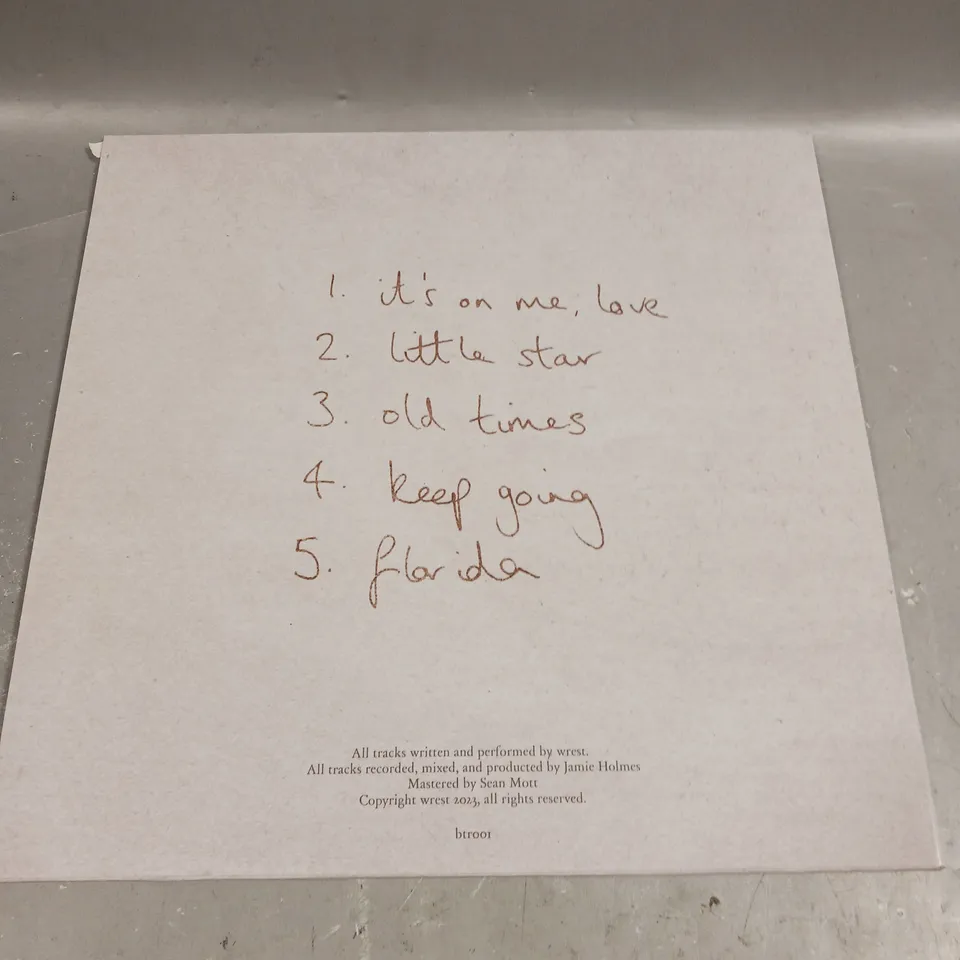 1. it's on me, love
2. little star
3. old times
4. keep going
5. florida
All tracks written and performed by wrest.
All tracks recorded, mixed, and producted by Jamie Holmes
Mastered by Sean Mott
Copyright wrest 2023, all rights reserved.
btr001